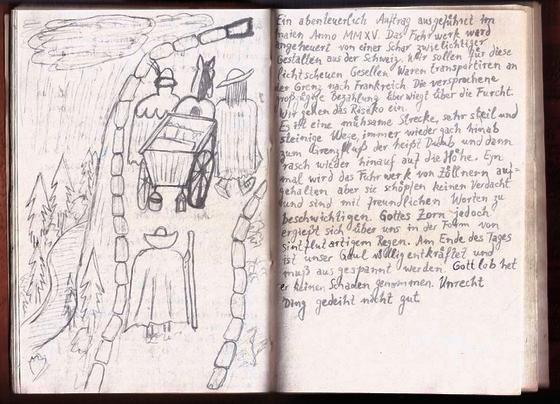 Ein abenteuerlich Auftrag ausgeführet im
maien Anno MMXV. Das Fuhrwerk ward
angeheuert von einer Schar zwielichtiger
Gestalten aus der Schweiz. Wir sollen für diese
lichtscheuen Gesellen Waren transportiren an
der Grenz nach Frankreich. Die versprochene
großzügige Bezahlung überwiegt über die Furcht.
Wir gehen das Risiko ein.
Es ist eine mühsame Strecke, sehr steil und
steinige Wege, immer wieder gach hinab
zum Grenzfluß der heißt Dub und dann
rasch wieder hinauf auf die Höhe. Ejn
mal wird das Fuhrwerk von Zöllnern auf=
gehalten aber sie schöpfen keinen Verdacht
und sind mit freundlichen Worten zu
beschwichtigen. Gottes Zorn jedoch
ergießt sich über uns in der Form von
sintflutartigem Regen. Am Ende des Tages
ist unser Gaul völlig entkräftet und
muß aus gespannt werden. Gott lob het
er keinen Schaden genommen. Unrecht
Ding gedeiht nicht gut